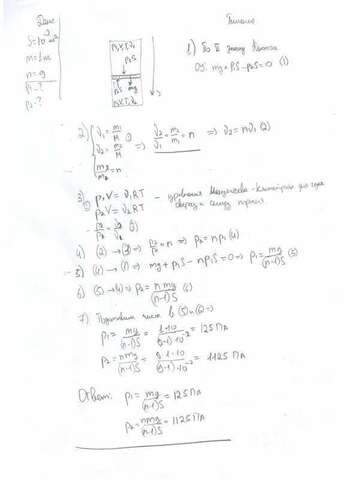 Дано:
S=10⁻² м²
m=1 кг
n=9
p₁-?
p₂-?
Решение.
p₁S
p₂S mg
1) По II закону Ньютона
OY: mg + p₁S - p₂S = 0 (1)
2) { ν₁ = m₁/M
ν₂ = m₂/M => ν₂/ν₁ = m₂/m₁ = n => ν₂ = nν₁ (2)
m₂/m₁ = n
3) p₁V = ν₁RT - уравнения Менделеева-Клапейрона для газа
p₂V = ν₂RT сверху и снизу поршня
4) (2) → (3) => p₂/p₁ = n => p₂ = np₁ (4)
5) (4) → (1) => mg + p₁S - np₁S = 0 => p₁ = mg/(n-1)S (5)
6) (5) → (4) => p₂ = nmg/(n-1)S (6)
7) Подставим числа в (5) и (6) =>
p₁ = mg/(n-1)S = 1·10/(9-1)·10⁻² = 125 Па
p₂ = nmg/(n-1)S = 9·1·10/(9-1)·10⁻² = 1125 Па
Ответ: p₁ = mg/(n-1)S = 125 Па
p₂ = nmg/(n-1)S = 1125 Па